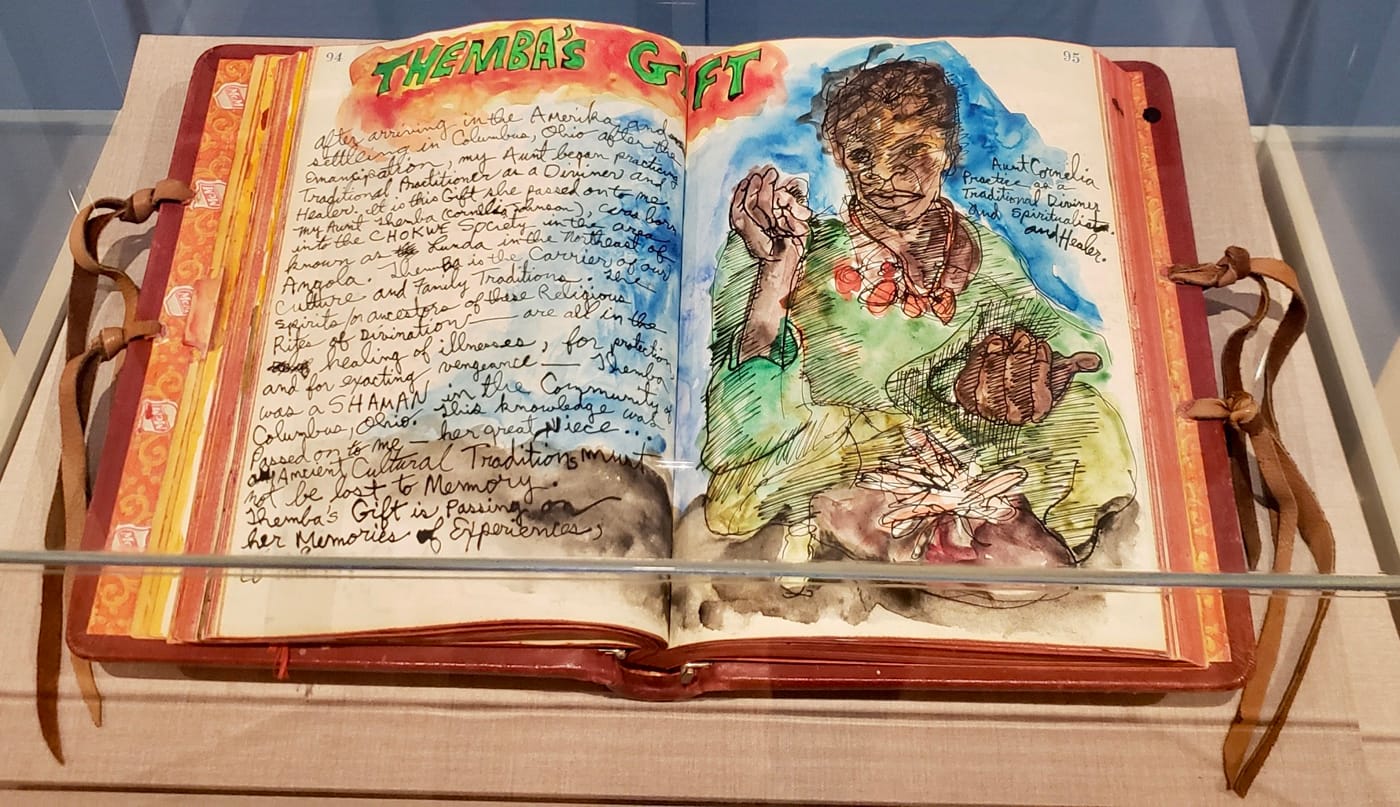 94
THEMBA'S GIFT
after arriving in the Amerika and
settling in Columbus, Ohio after the
Emancipation, my Aunt began practicing
Traditional Practitioner as a Diviner and
Healer. It is this Gift she passed on to me.
my Aunt Themba (Cornelia Johnson), was born
into the CHOKWE Society in the area
known as Lunda in the Northeast of
Angola. Themba is the Carrier of our
Culture and Family Traditions. The
spirits/or ancestors of these Religious
Rites of Divination — are all in the
healing of illnesses, for protection
and for exacting vengeance — Themba
was a SHAMAN in the Community of
Columbus, Ohio. This knowledge was
Passed on to me — her great Niece...
Ancient Cultural Traditions must
not be lost to Memory.
Themba's Gift is Passing on
her Memories of Experiences,
95
Aunt Cornelia
Practice as a
Traditional Diviner
and Spiritualist
and Healer.
MCM
MCM
MCM
MCM